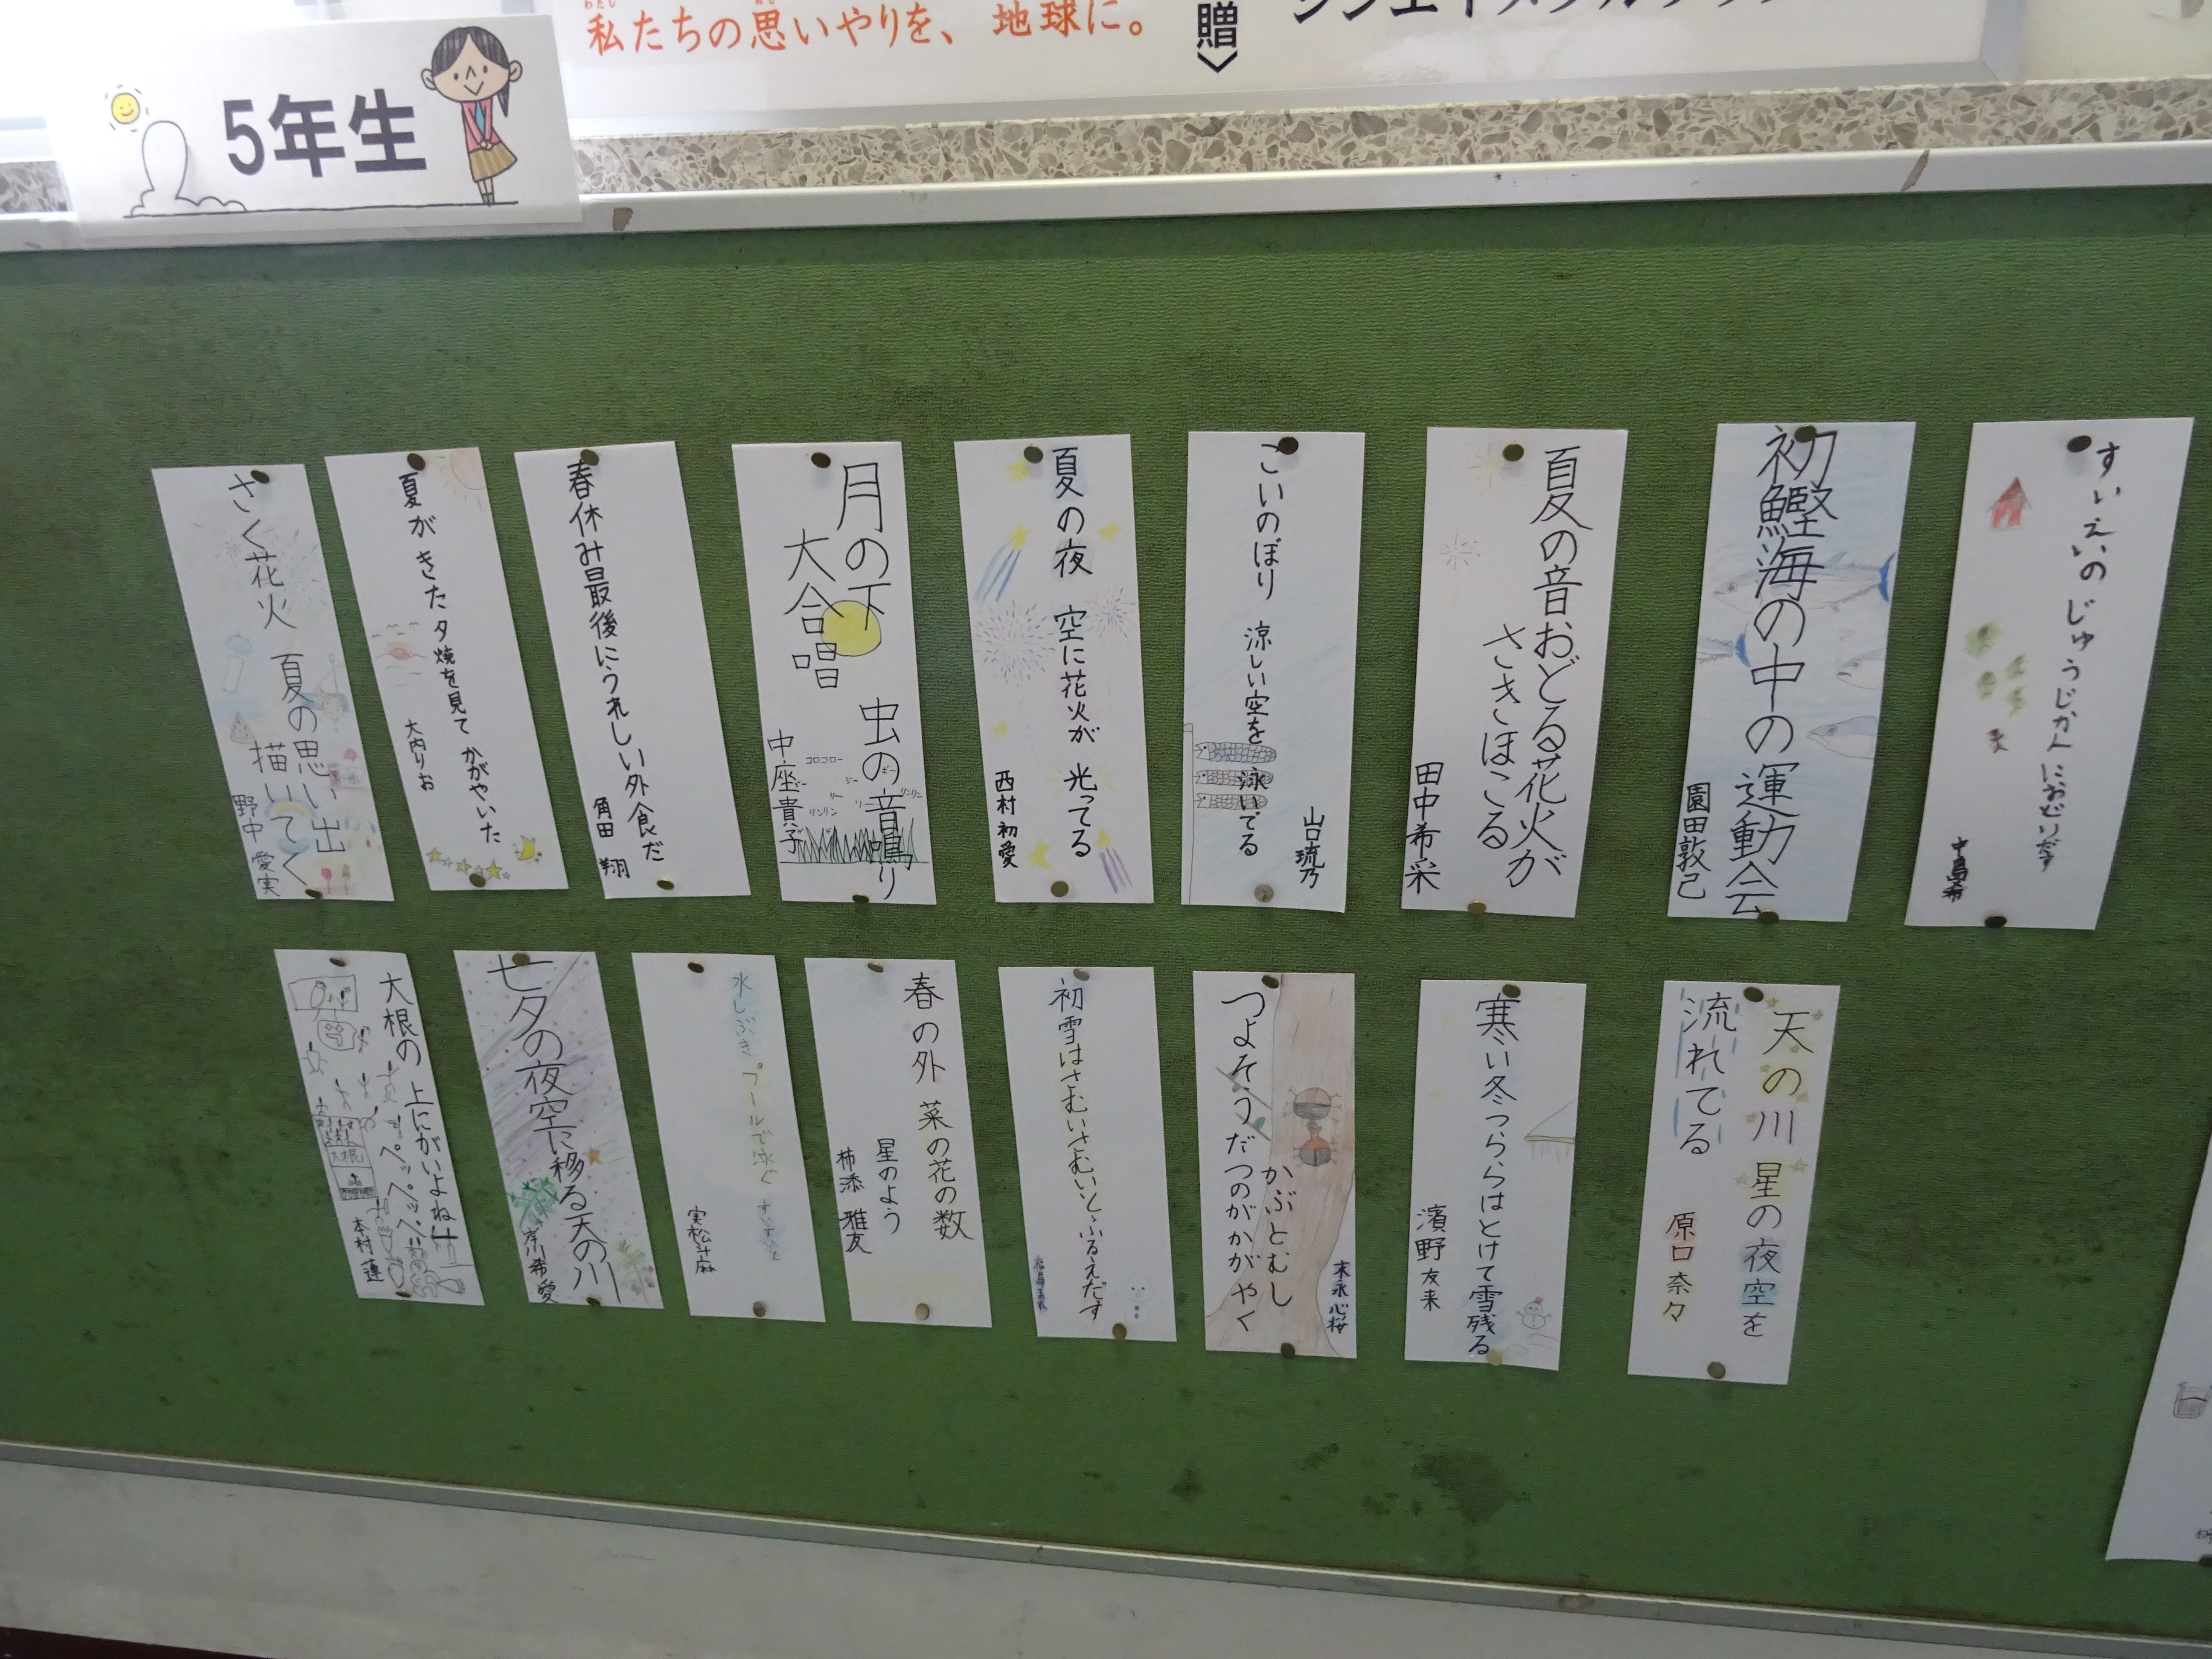 私たちの思いやりを、地球に。
贈〉
5年生
すいえいのじゅうじかんにおどりだす
中島希
初鰹海の中の運動会
園田敦己
夏の音おどる花火が
さきほこる
田中希采
山口琉乃
こいのぼり 涼しい空を 泳いでる
夏の夜 空に花火が 光ってる
西村初愛
月の下 虫の音鳴り
大合唱
コロコロー
リンリン
リンリン
中座貴子
春休み最後にうれしい外食だ
角田 翔
夏がきた夕焼を見て かがやいた
大内りお
さく花火 夏の思い出
描いてく
野中 愛実
天の川 星の夜空を
流れてる
原口奈々
寒い冬つららはとけて雪残る
濱野友来
末永心桜
かぶとむし
つよそうだつのがかがやく
初雪はさむいさむいとふるえだす
春の外 菜の花の数
星のよう
柿添 雅友
水しぶき プールで泳ぐ すいすいと
実松斗麻
七夕の夜空に移る天の川
岸川希愛
大根の 上にがいよね!!
ペッペッペッ!!
大根
本村 蓮